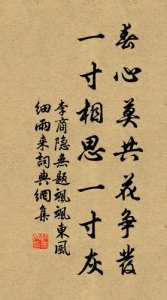 春心莫共花争發
一寸相思一寸灰
李商隐無題颯颯東風
细雨来詞典網集